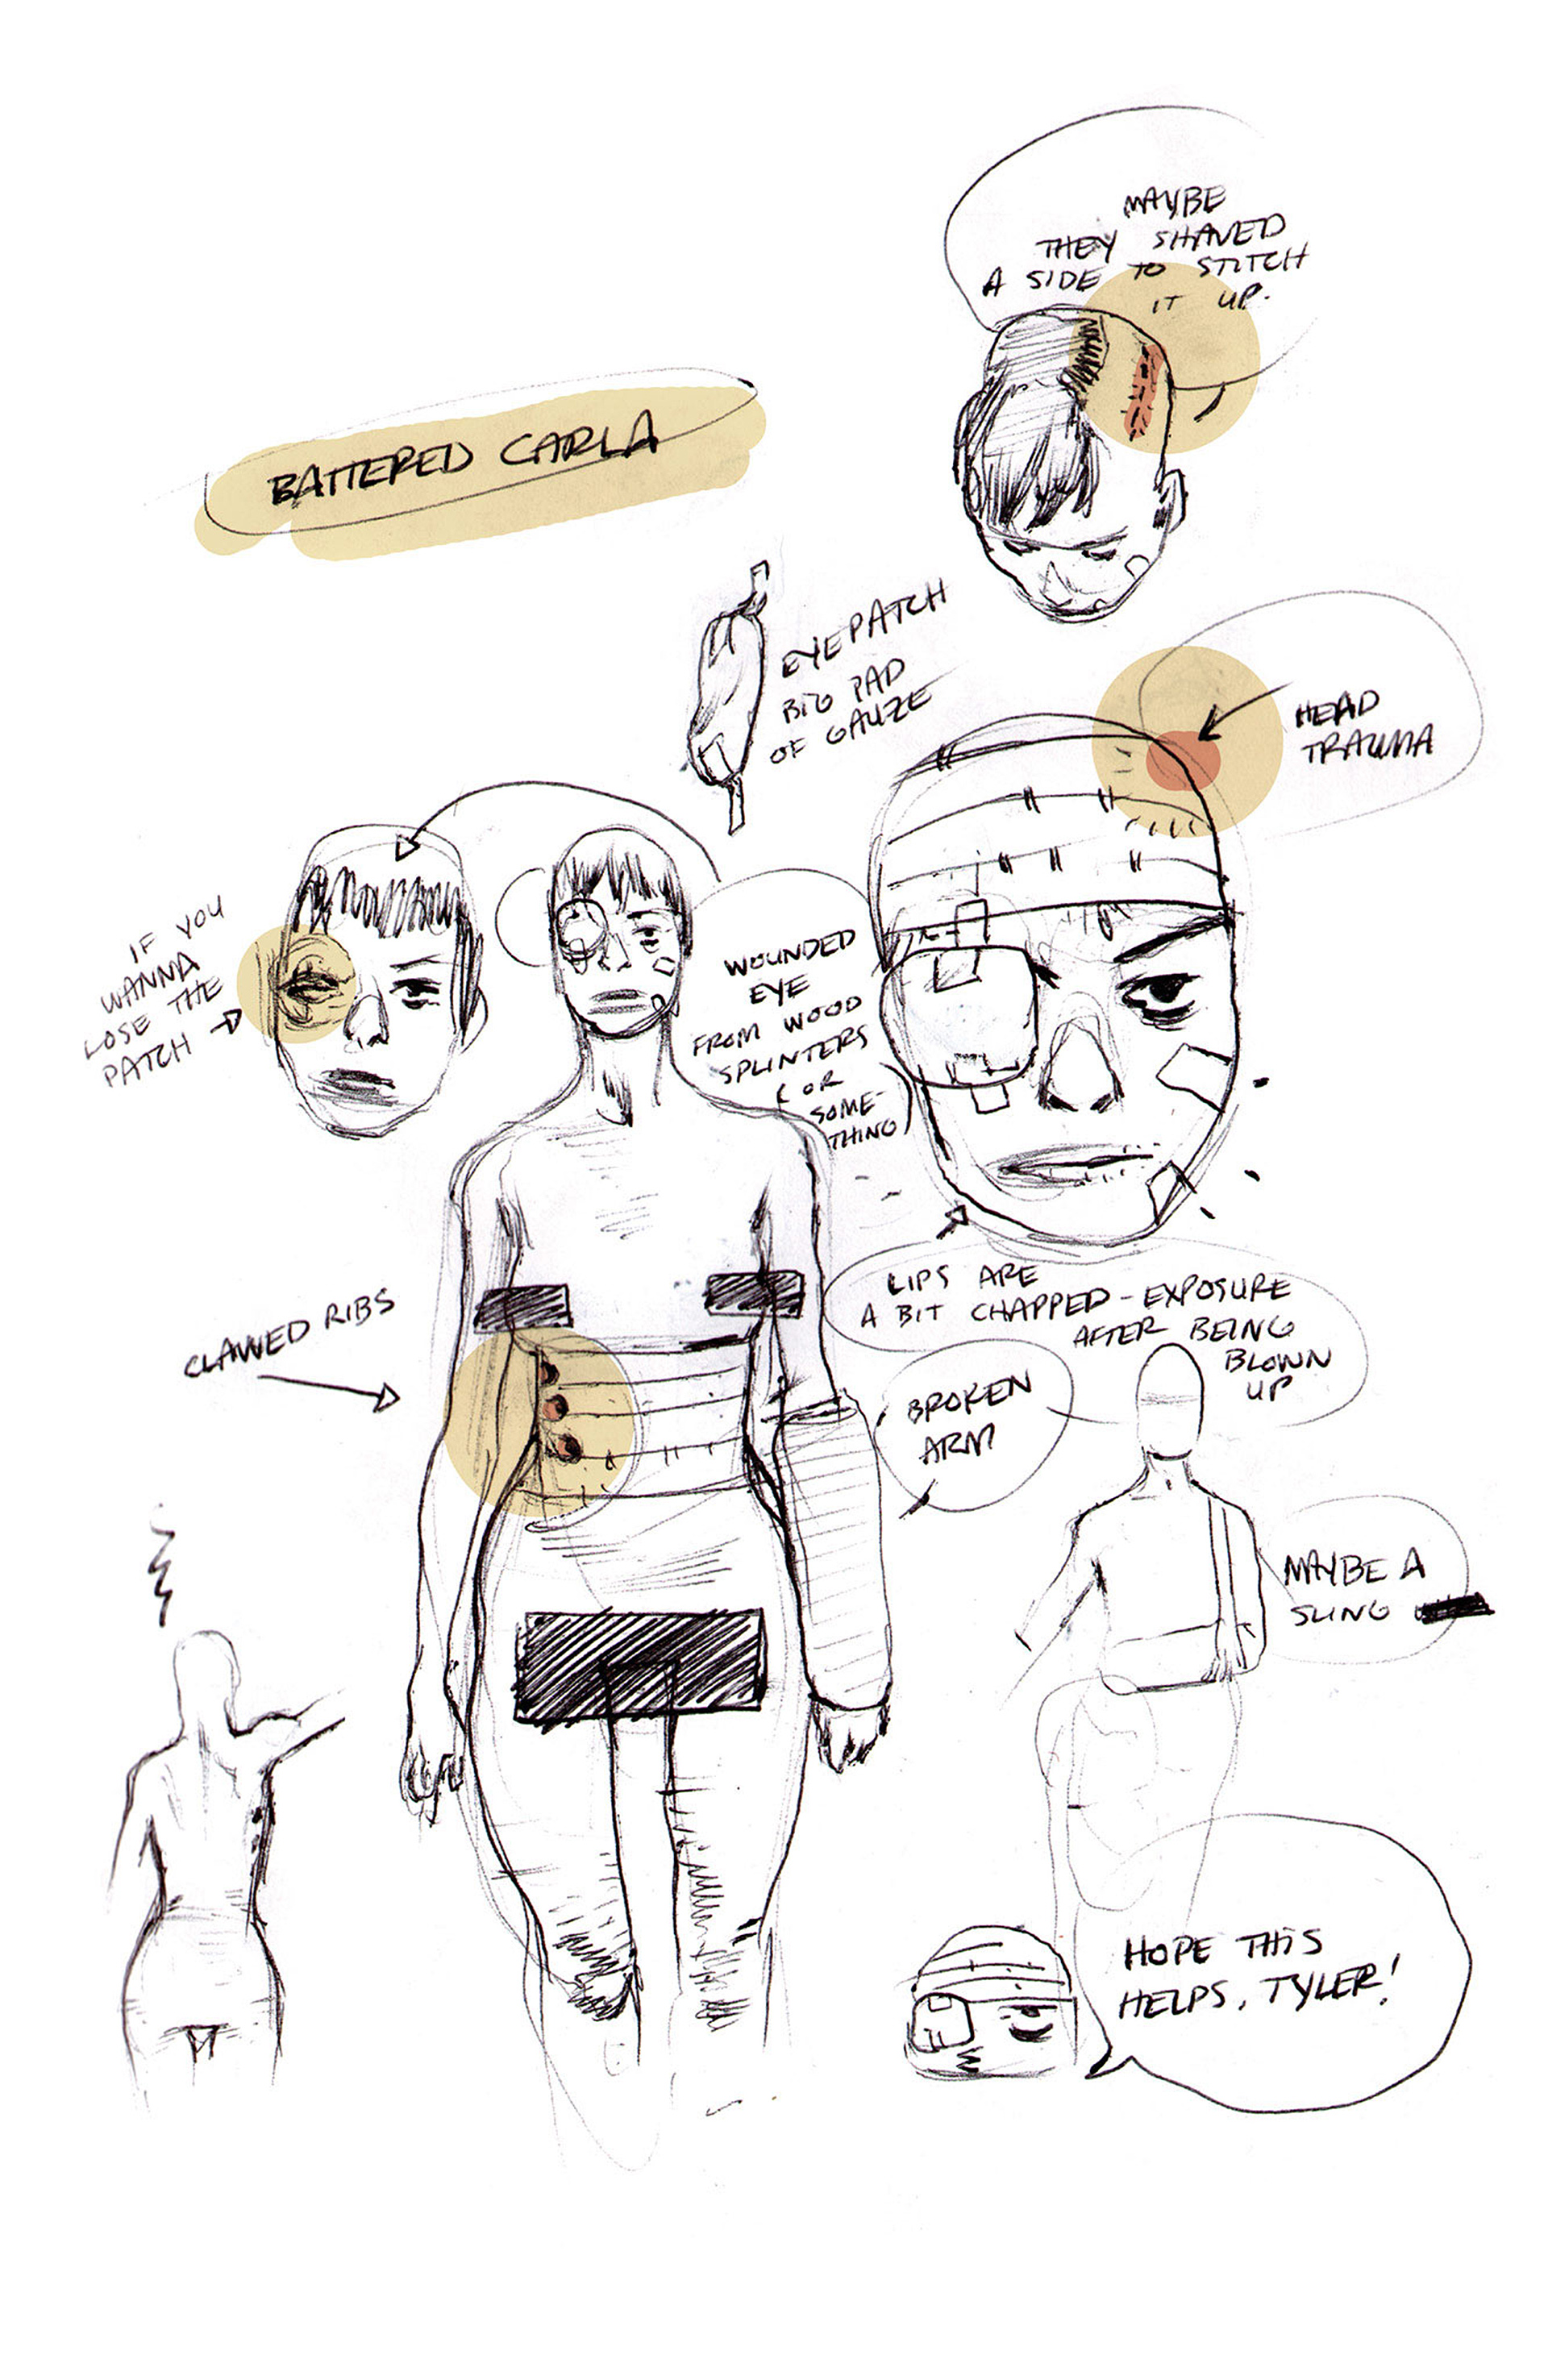 MAYBE
THEY SHAVED
A SIDE TO STITCH
IT UP.
BATTERED CARLA
EYEPATCH
BIG PAD
OF GAUZE
HEAD
TRAUMA
IF YOU
WANNA
LOSE THE
PATCH
WOUNDED
EYE
FROM WOOD
SPLINTERS
(OR
SOME-
THING)
LIPS ARE
A BIT CHAPPED - EXPOSURE
AFTER BEING
BLOWN
UP
CLAWED RIBS
BROKEN
ARM
MAYBE A
SLING
HOPE THIS
HELPS, TYLER!